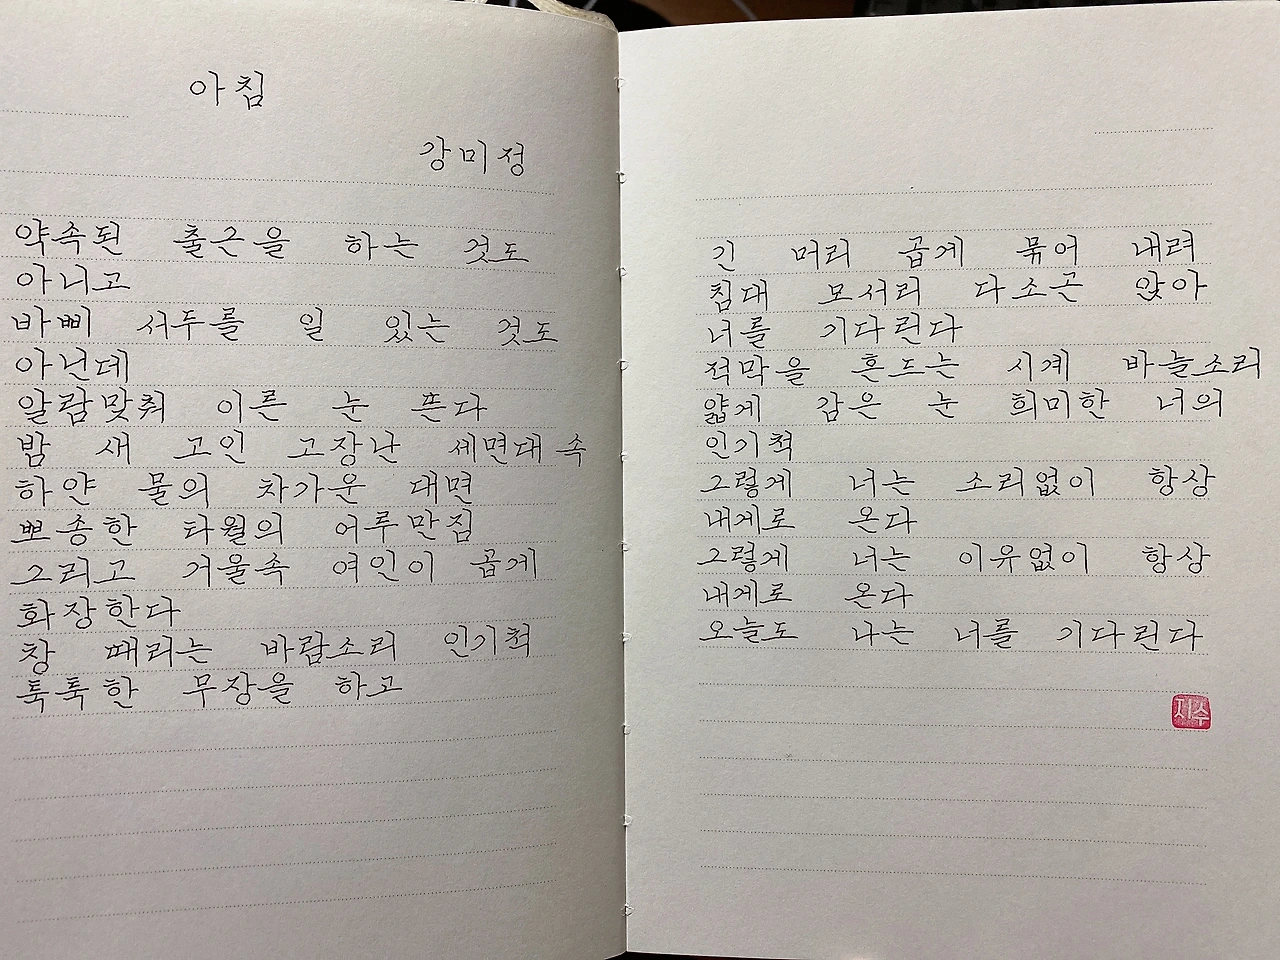 아침
강미정
약속된 출근을 하는 것도
아니고
바삐 서두를 일 있는 것도
아닌데
알람맞춰 이른 눈 뜬다
밤 새 고인 고장난 세면대 속
하얀 물의 차가운 대면
뽀송한 타월의 어루만짐
그리고 거울속 여인이 곱게
화장한다
창 때리는 바람소리 인기척
툭툭한 무장을 하고
긴 머리 곱게 묶어 내려
침대 모서리 다소곤 앉아
너를 기다린다
적막을 흔드는 시계 바늘소리
얇게 감은 눈 희미한 너의
인기척
그렇게 너는 소리없이 항상
내게로 온다
그렇게 너는 이유없이 항상
내게로 온다
오늘도 나는 너를 기다린다
지수